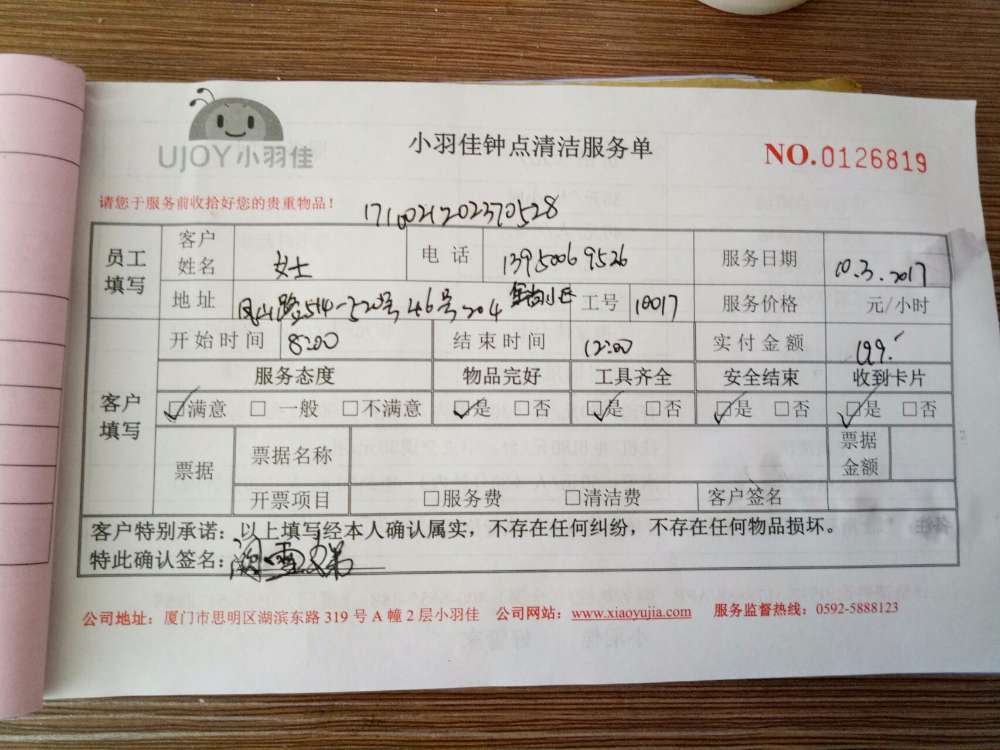 UJOY小羽佳
小羽佳钟点清洁服务单
NO.0126819
请您于服务前收拾好您的贵重物品！
1710021202370528
员工填写 客户姓名 女士 电话 13950069526 服务日期 10.3.2017
地址 凤山路514-520号46号204 工号 10017 服务价格 元/小时
开始时间 8:00 结束时间 12:00 实付金额 199.
客户填写 服务态度 物品完好 工具齐全 安全结束 收到卡片
☑满意 □一般 □不满意 ☑是 □否 ☑是 □否 ☑是 □否 ☑是 □否
票据 票据名称 票据金额
开票项目 □服务费 □清洁费 客户签名
客户特别承诺：以上填写经本人确认属实，不存在任何纠纷，不存在任何物品损坏。
特此确认签名：
公司地址：厦门市思明区湖滨东路 319 号 A 幢 2 层小羽佳 公司网站：www.xiaoyujia.com 服务监督热线：0592-5888123